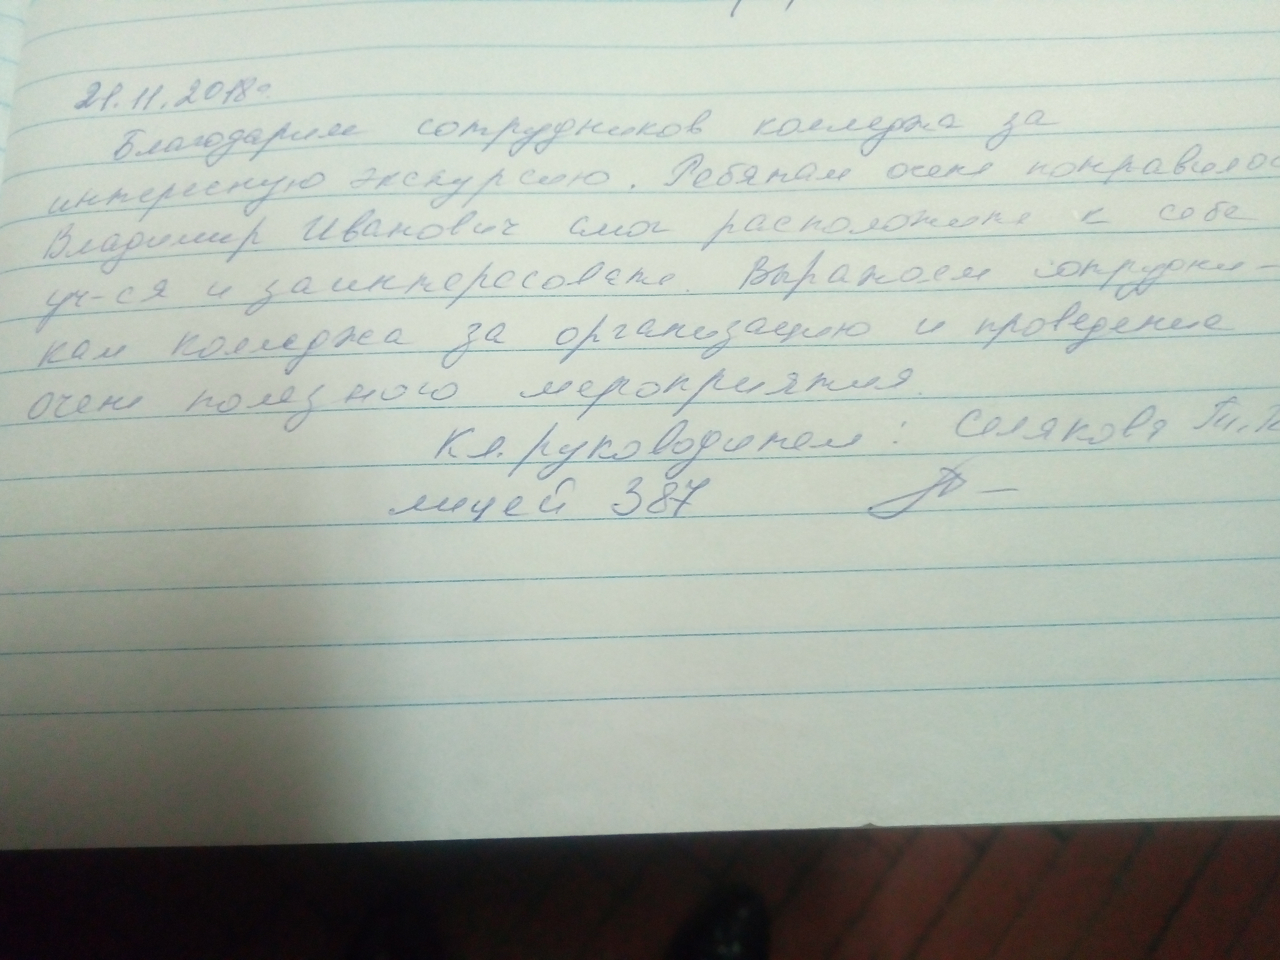 21.11.2018г.
Благодарим сотрудников колледжа за
интересную экскурсию. Ребятам очень понравилос
Владимир Иванович смог расположить к себе
уч-ся и заинтересовать. Выражаем сотрудни-
кам колледжа за организацию и проведение
очень полезного мероприятия.
Кл. руководитель: Селякова
лицей 387